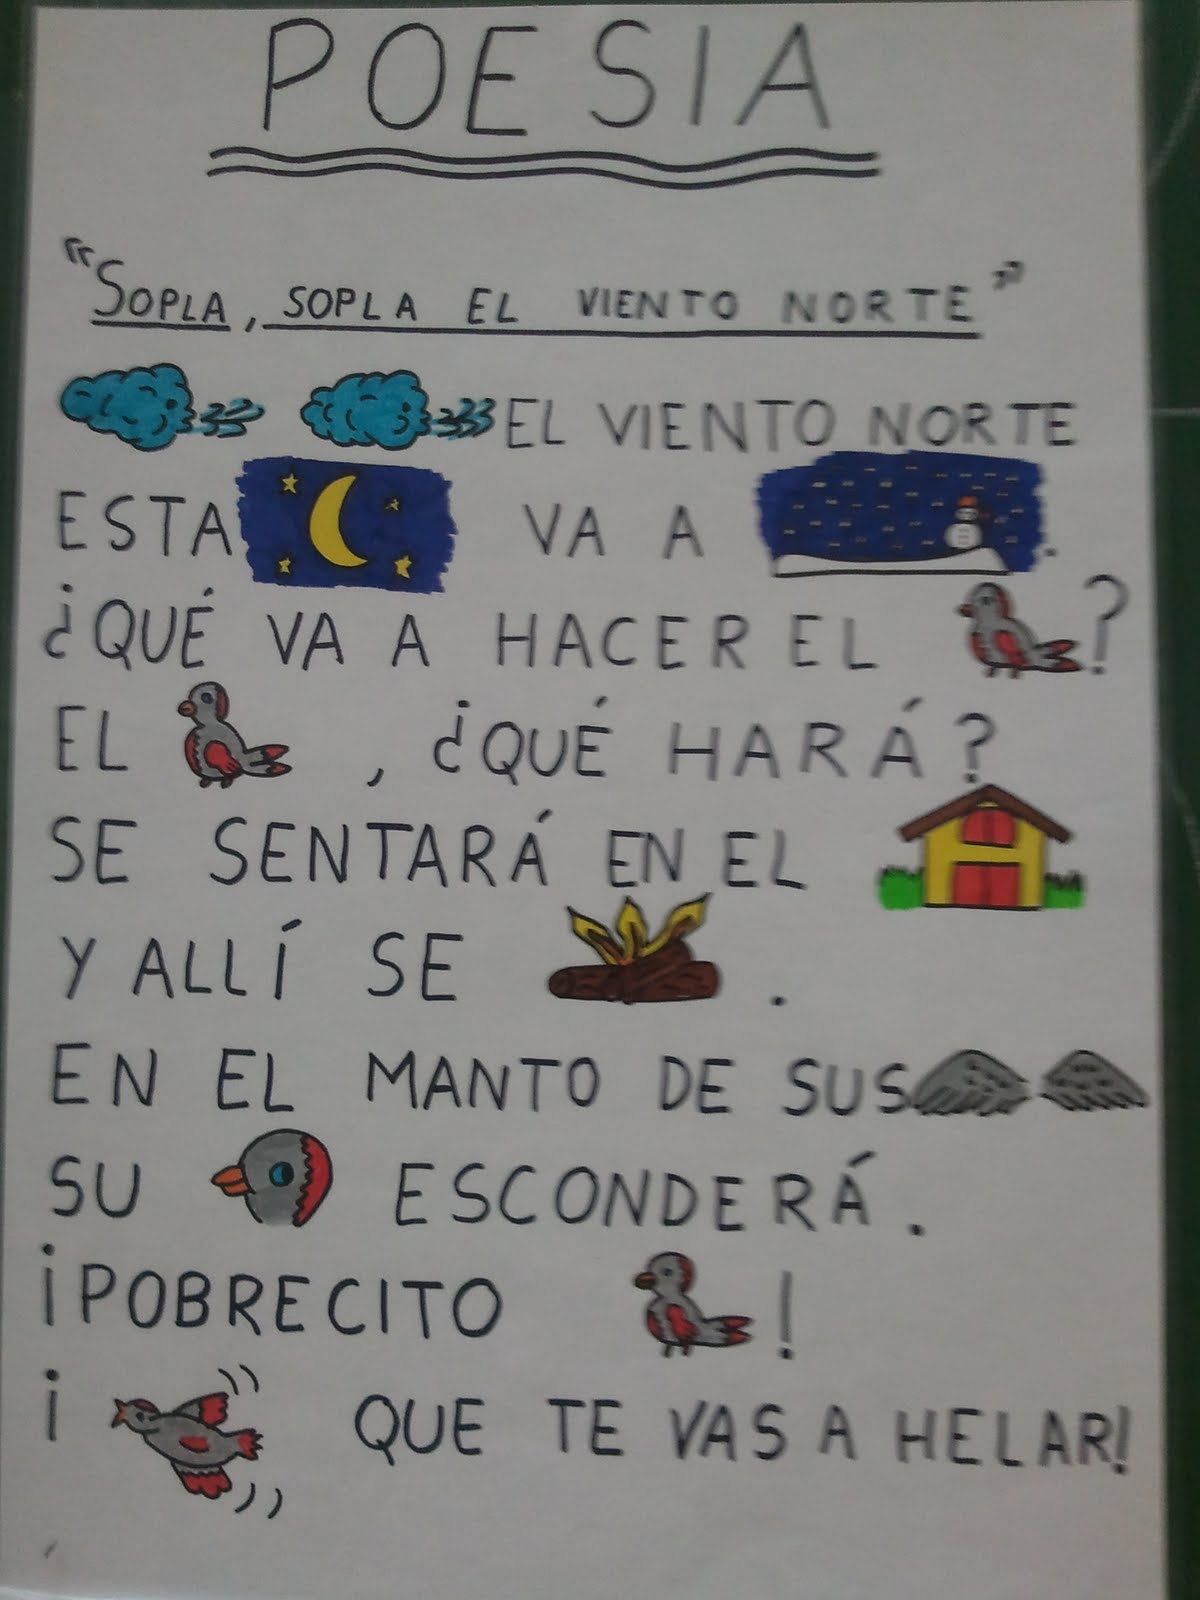 POESIA
"SOPLA, SOPLA EL VIENTO NORTE"
EL VIENTO NORTE
ESTA VA A .
¿QUÉ VA A HACER EL ?
EL , ¿QUÉ HARÁ?
SE SENTARÁ EN EL
Y ALLÍ SE .
EN EL MANTO DE SUS
SU ESCONDERÁ.
¡POBRECITO !
¡ QUE TE VAS A HELAR!